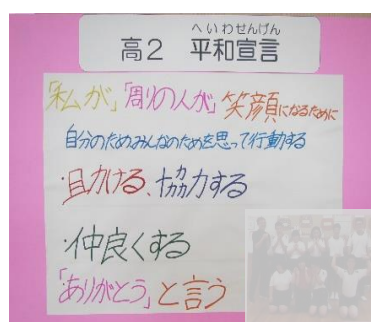 へいわせんげん
高2 平和宣言
「私が」「周りの人が」笑顔になるために
自分のためみんなのためを思って行動する
・助ける、協力する
・仲良くする
「ありがとう」と言う